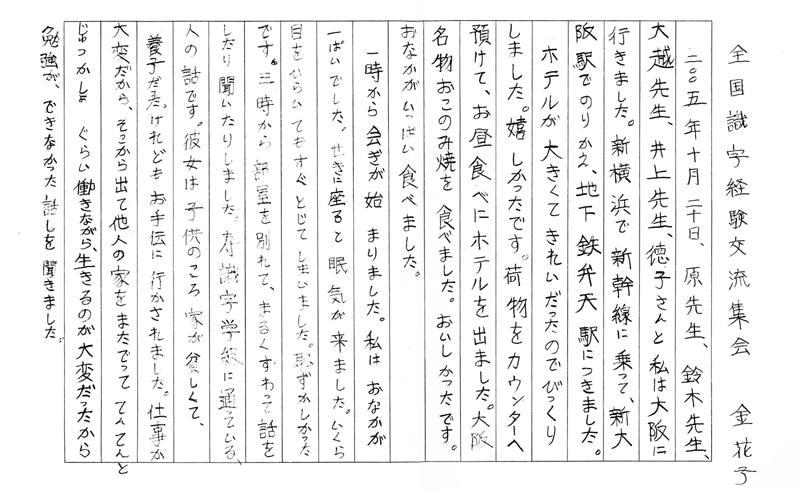 全国識字経験交流集会　金花子
二〇〇五年十月二十日、原先生、鈴木先生、
大越先生、井上先生、徳子さんと私は大阪に
行きました。新横浜で新幹線に乗って、新大
阪駅でのりかえ、地下鉄弁天駅につきました。
ホテルが大きくてきれいだったのでびっくり
しました。嬉しかったです。荷物をカウンターへ
預けて、お昼食べにホテルを出ました。大阪
名物おこのみ焼を食べました。おいしかったです。
おなかがいっぱい食べました。
一時から会ぎが始まりました。私はおなかが
一ぱいでした。せきに座ると眠気が来ました。いくら
目をひらいてもすぐとじてしまいました。恥ずかしかった
です。三時から部屋を別れて、まるくすわって話を
したり聞いたりしました。寿識字学級に通っている、
人の話です。彼女は子供のころ家が貧しくて、
養子だった。けれどもお手伝に行かされました。仕事が
大変だから、そこから出て他人の家をまたでっててんてんと
ぐらい働きながら、生きるのが大変だったから
勉強が、できなかった話しを聞きました。